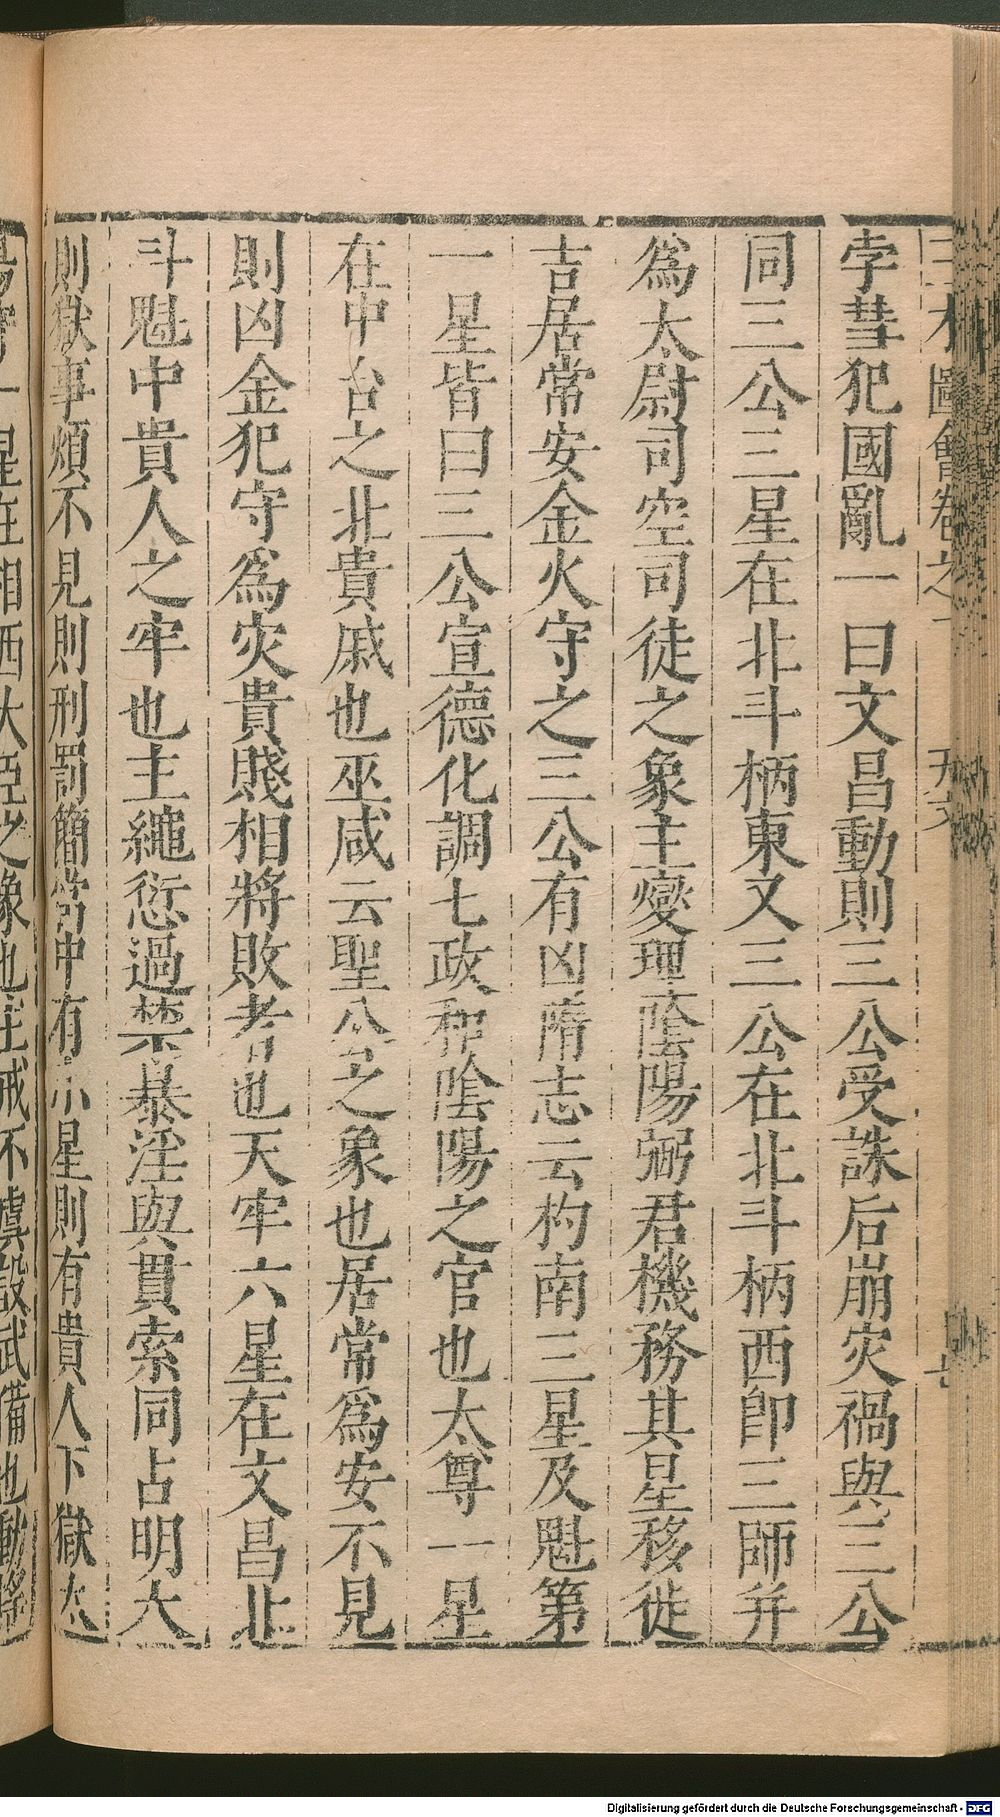 三才圖會卷之一 天文
孛彗犯國亂一曰文昌動則三公受誅后崩灾禍與三公
同三公三星在北斗柄東又三公在北斗柄西卽三師并
爲太尉司空司徒之象主變理陰陽弼君機務其星移徙
吉居常安金火守之三公有凶隋志云杓南三星及魁第
一星皆曰三公宣德化調七政和陰陽之官也太尊一星
在中台之北貴戚也巫咸云聖公之象也居常爲安不見
則凶金犯守爲灾貴賤相將敗者也天牢六星在文昌北
斗魁中貴人之牢也主繩愆過禁暴淫與貫索同占明大
則獄事煩不見則刑罰簡常中有小星則有貴人下獄太
陽守一星在相西大臣之象也主戒不虞設武備也動搖
Digitalisierung gefördert durch die Deutsche Forschungsgemeinschaft - DFG